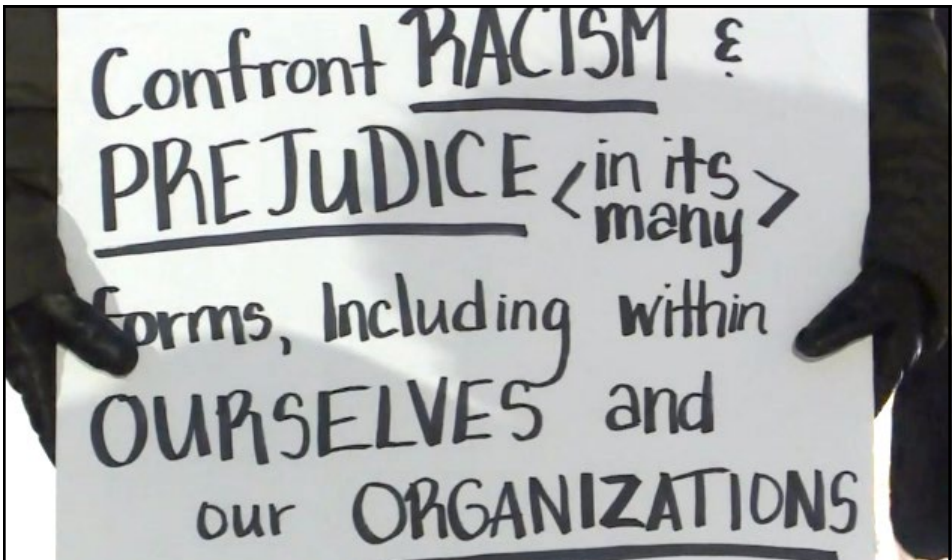 Confront RACISM &
PREJUDICE <in its
many>
forms, Including within
OURSELVES and
our ORGANIZATIONS